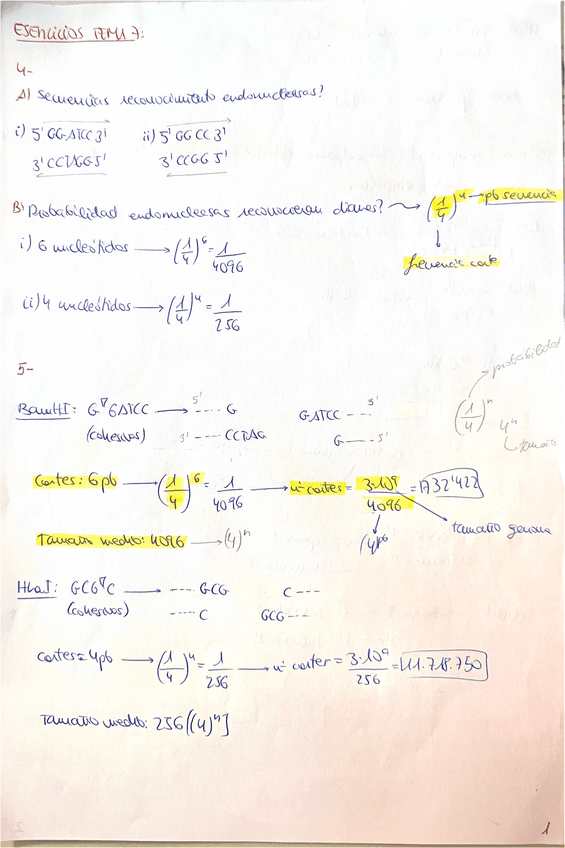 EJERCICIOS TEMA 7:
4-
A) Secuencias reconocimiento endonucleasas?
i) 5' GGATCC 3'   ii) 5' GGCC 3'
3' CCTAGG 5'   3' CCGG 5'
B) Probabilidad endonucleasas reconocieran dianas? → (1/4)^n → pb secuencia
frecuencia corte
i) 6 nucleótidos → (1/4)^6 = 1/4096
ii) 4 nucleótidos → (1/4)^4 = 1/256
5-
probabilidad
(1/4)^n
4^n
tamaño
BamHI: G▽GATCC → 5' ---- G   GATCC --- 5'
(cohesivos)   3' --- CCTAG   G --- 5'
Cortes: 6pb → (1/4)^6 = 1/4096 → nº cortes = 3·10^9/4096 = 732'422
(4)^6   tamaño genoma
Tamaño medio: 4096 → (4)^n
HhaI: GCG▽C → ---- GCG   C ---
(cohesivos)   ---- C   GCG ---
cortes = 4pb → (1/4)^4 = 1/256 → nº cortes = 3·10^9/256 = 11.718.750
Tamaño medio: 256 [(4)^n]
1